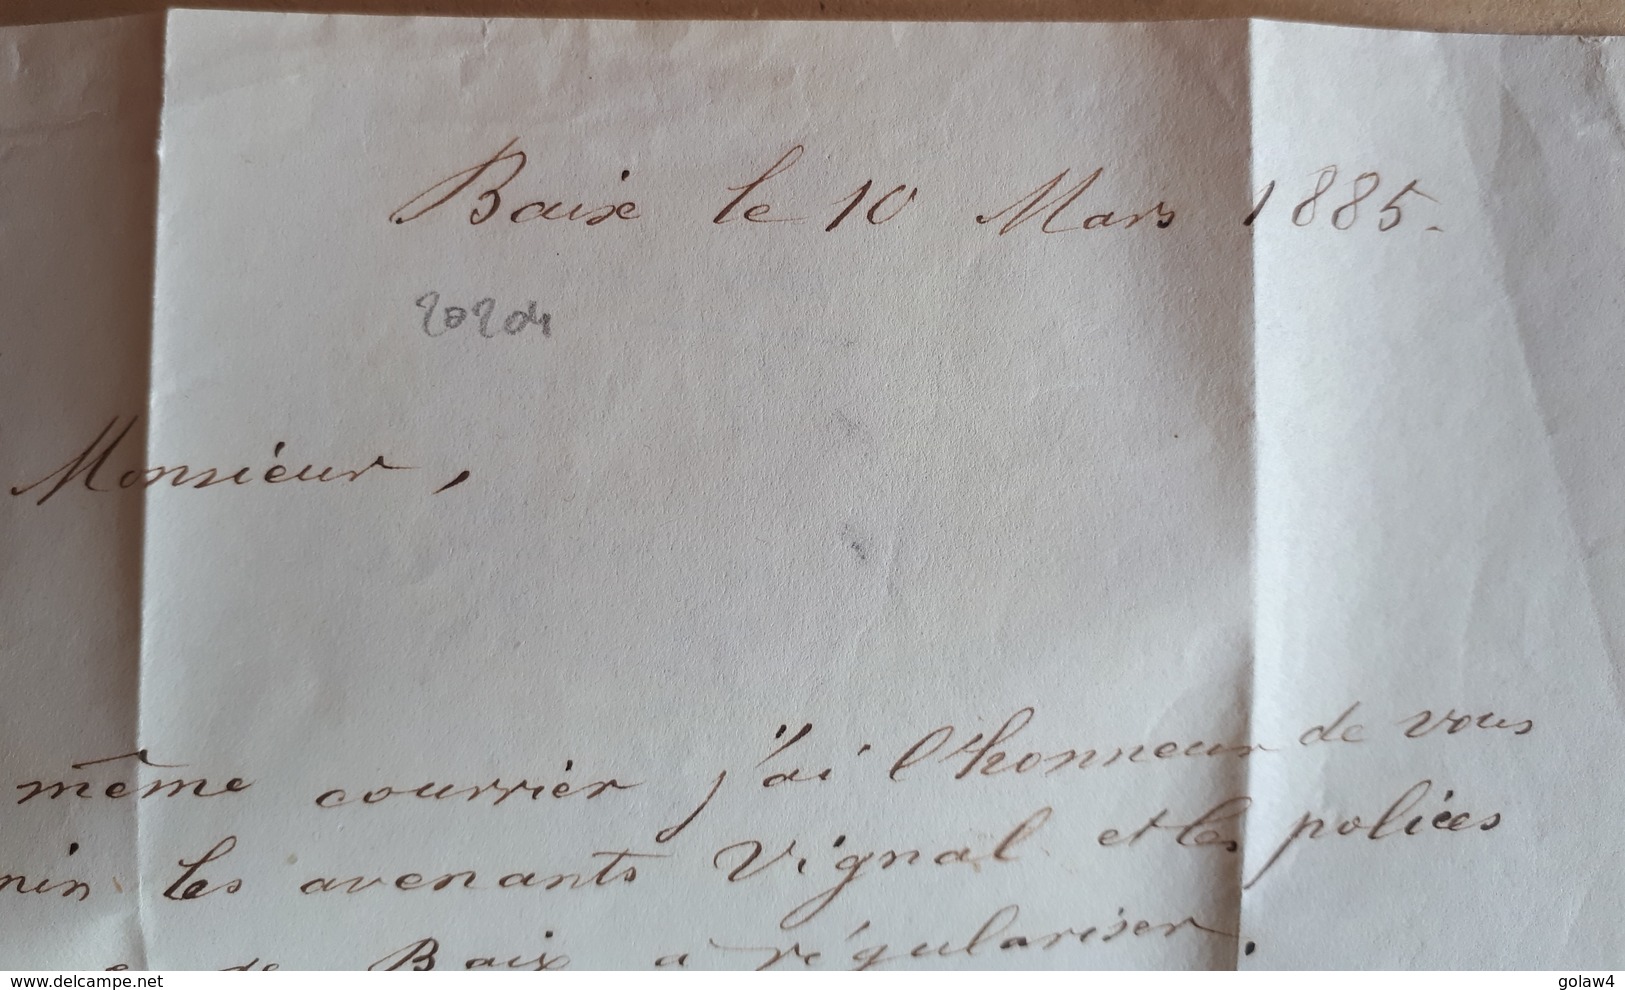 Baix le 10 Mars 1885.
20204
Monsieur,
même courrier j'ai l'honneur de vous
les avenants Vignal et les polices
de Baix à régulariser.
www.delcampe.net
golaw4